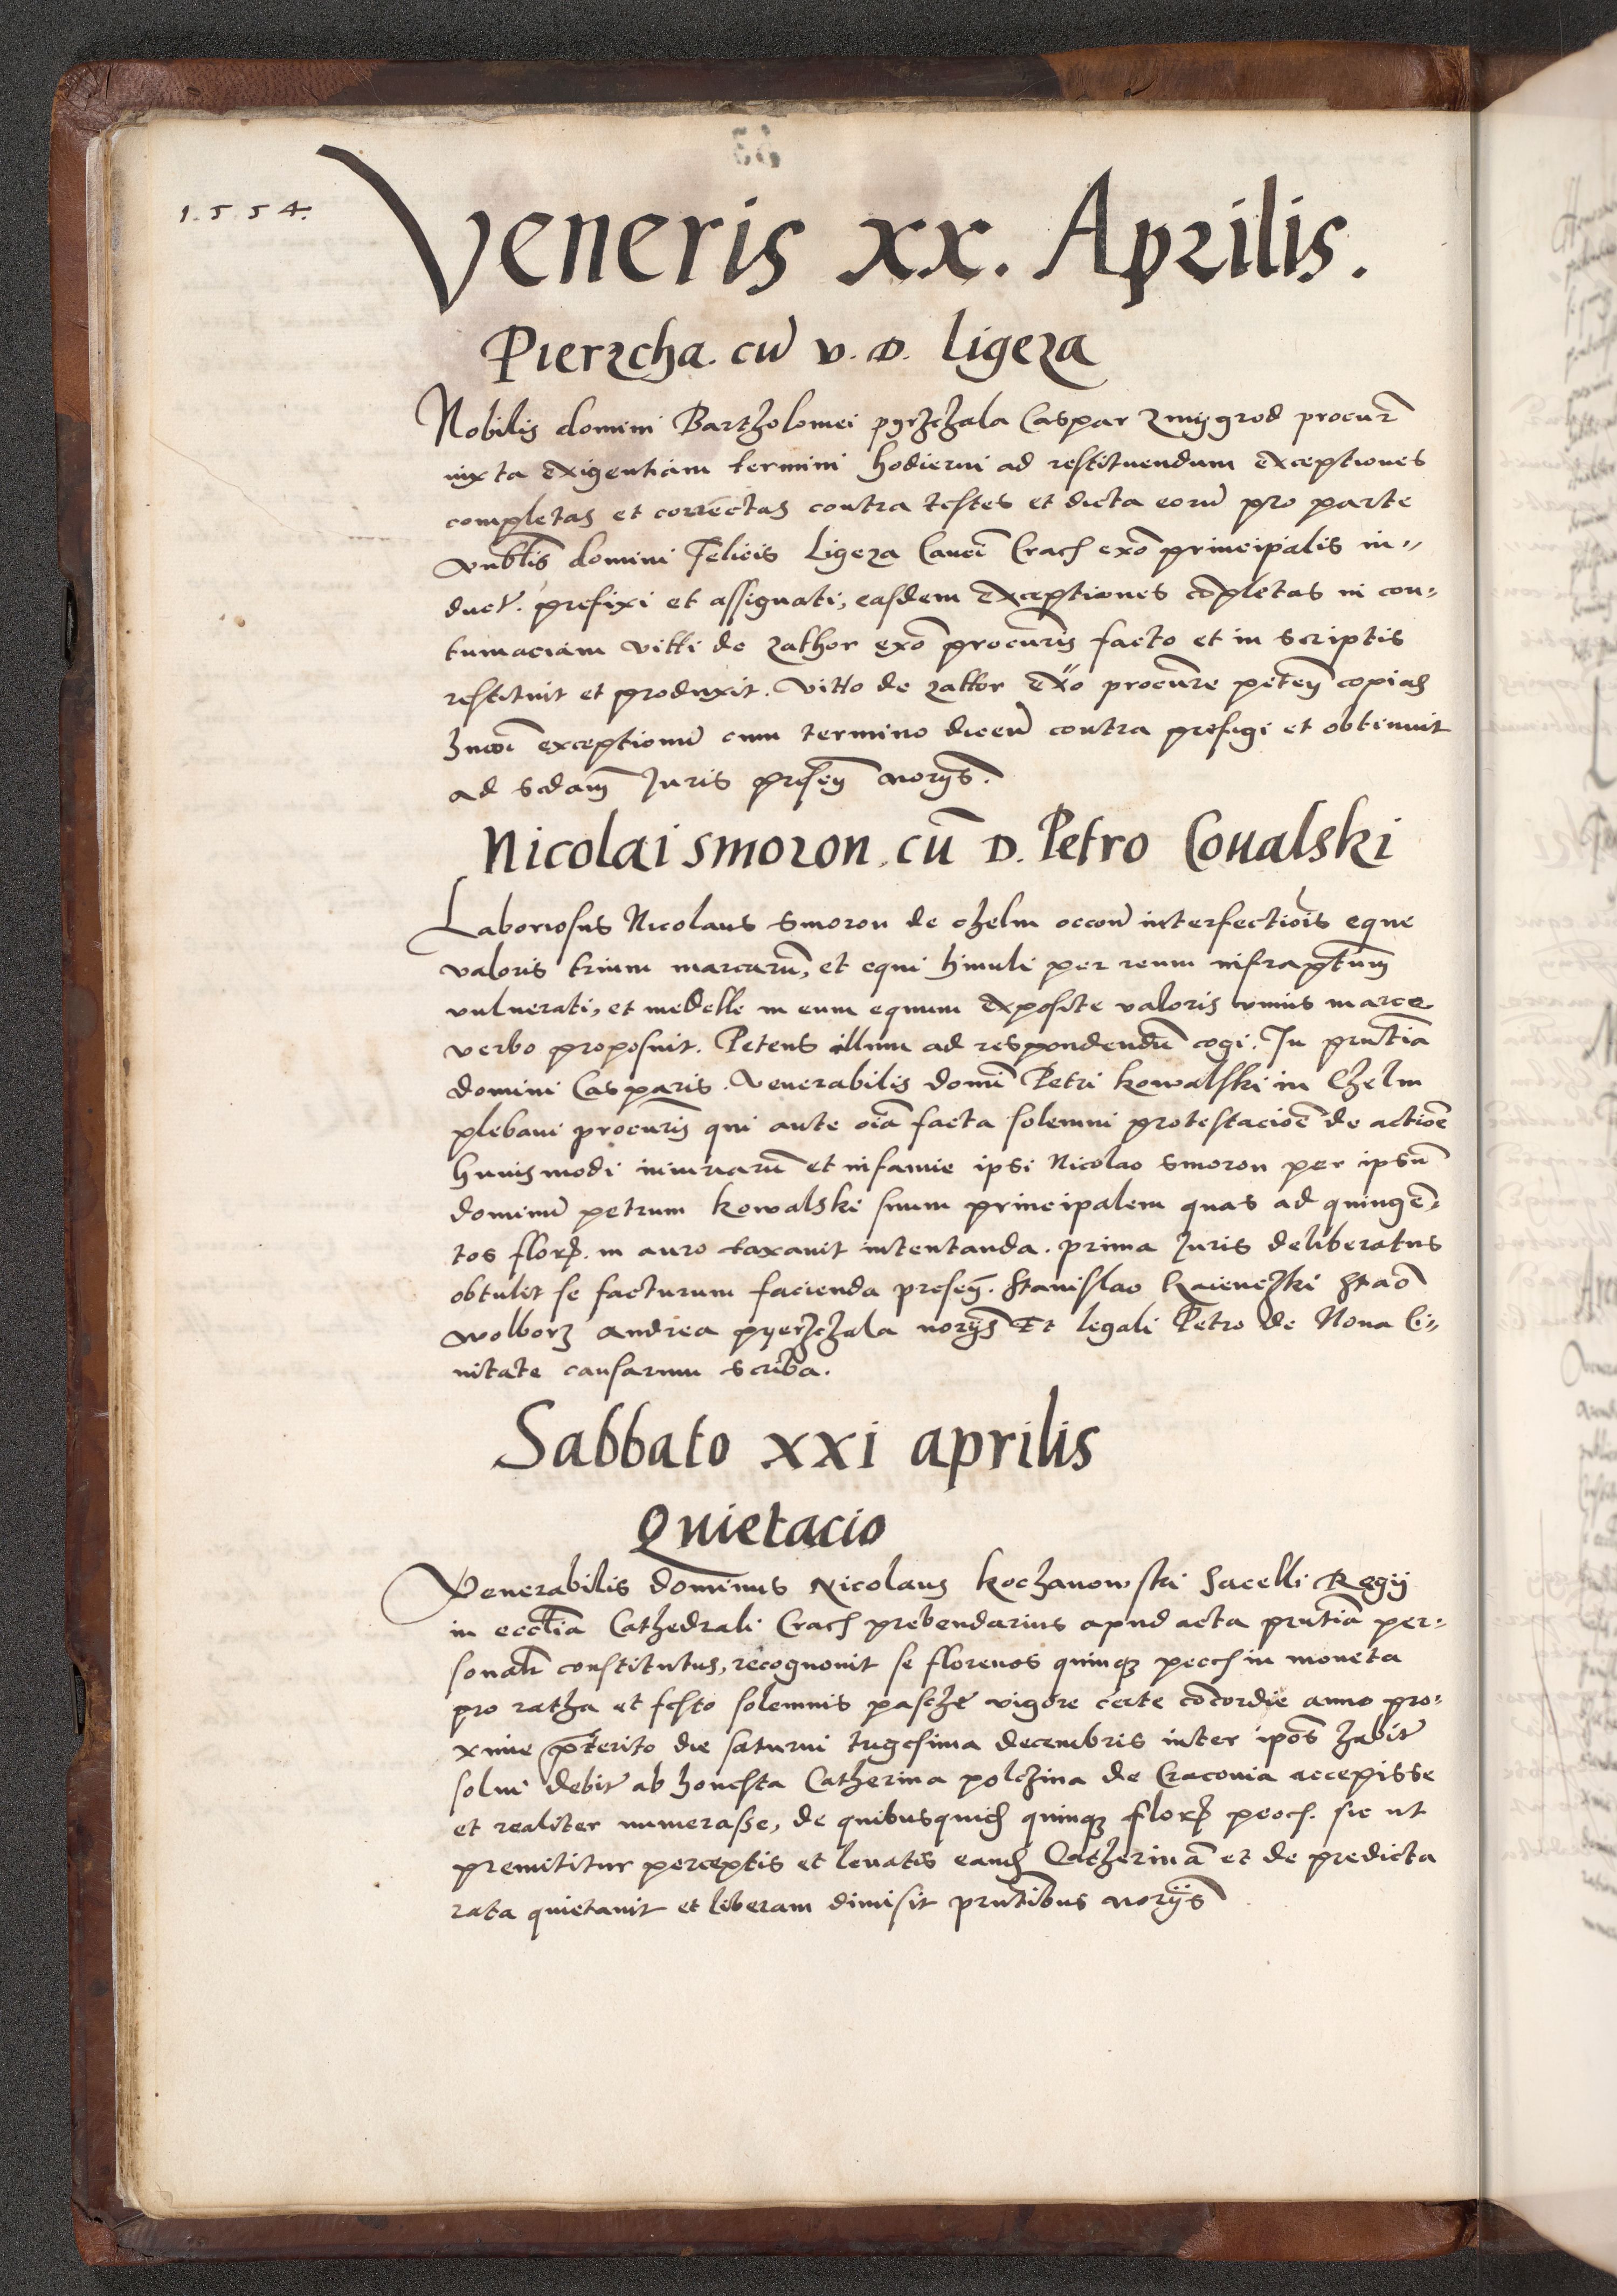 1.5.5.4.
Veneris xx. Aprilis.
Pierzcha. cū v. D. ligeza
Nobilis domini Bartholomei pyrzchala Caspar Zmygrod procur̄
iuxta exigentiam termini hodierni ad restituendum exceptiones
completas et correctas contra testes et dicta eorū pro parte
domini Felicis Ligeza Canci Crac exō principalis in„
duct. prefixi et assignati, easdem exceptiones cōpletas in con„
tumaciam vitti de zathor exō procur̄is facto et in scriptis
restituit et produxit. Vitto de zattor exō procur̄e peteñ copias
exceptionū cum termino diceñ contra prefigi et obtinuit
ad sc̄dam Juris preseñ norijs.
Nicolai smoron. cū D. Petro Coualski
Laboriosus Nicolaus Smoron de chelm occoñ interfectiōis eque
valoris trium marcarū, et equi hinuli per reum infrap̄tum
vulnerati, et medelle in eum equum exposite valoris vnius marce
verbo proposuit. Petens illum ad respondendū cogi. In pn̄tia
domini Casparis. Venerabilis domī Petri kowalski in Chelm
plebani procur̄is qui ante oīa facta solemni protestaciōe de actiōe
huiusmodi iniuriarū et infamie ipsi Nicolao smoron per ipsū
dominū petrum kowalski suum principalem quas ad quingē„
tos flor. in auro taxauit intentanda. prima Juris deliberatus
obtulit se facturum facienda preseñ. Stanislao
wolborz andrea pyerzchala norijs Et legali Petro de Noua Ci„
uitate causarum scriba.
Sabbato xxi aprilis
Quietacio
Venerabilis dominus Nicolaus koczanowski Sacelli Regij
in eccl̄ia Cathedrali Crac prebendarius apud acta pn̄tia per„
sonalr̄ constitutus, recognouit se florenos quinq pecc in moneta
pro ratha et festo solemnis pasche vigore certe cōcordie anno pro„
xime p̄terito die saturni trigesima decembris inter ipōs habit
solui debit ab honesta Catherina polchina de Cracouia accepisse
et realiter numerasse, de quibusquid quinq flor pecc. sic ut
premititur perceptis et leuatis eand Catherinā et de predicta
rata quietauit et liberam dimisit pn̄tibus norijs